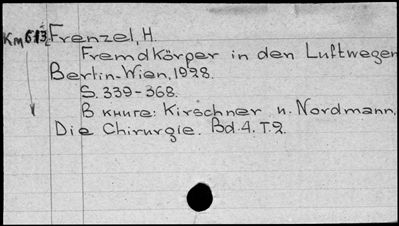 Frenzel, H.
Fremdkörper in den Luftwegen
Berlin-Wien, 1928.
S. 339-368.
В книге: Kirschner и. Nordmann,
Die Chirurgie. Bd. 4. T. 2.